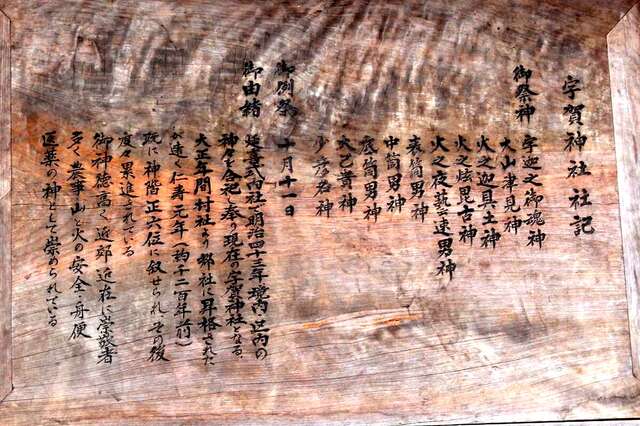 宇賀神社社記
御祭神 宇迦之御魂神
大山津見神
火之迦具土神
火之炫毘古神
火之夜藝速男神
表筒男神
中筒男神
底筒男神
火乙黄神
少彦名神
御例祭 十月十一日
御由緒 延喜式内社、明治四十三年境内以内の
神を合祀し奉り現在の宇賀神社となる、
大正年間村社より郷社に昇格された
が遠く仁寿元年(約千二百年前)
既に神階正六位に叙せられ、その後
度々累進されている
御神徳高く近郊近在に崇敬者
多く農事山と火の安全・身体
医薬の神として崇められている